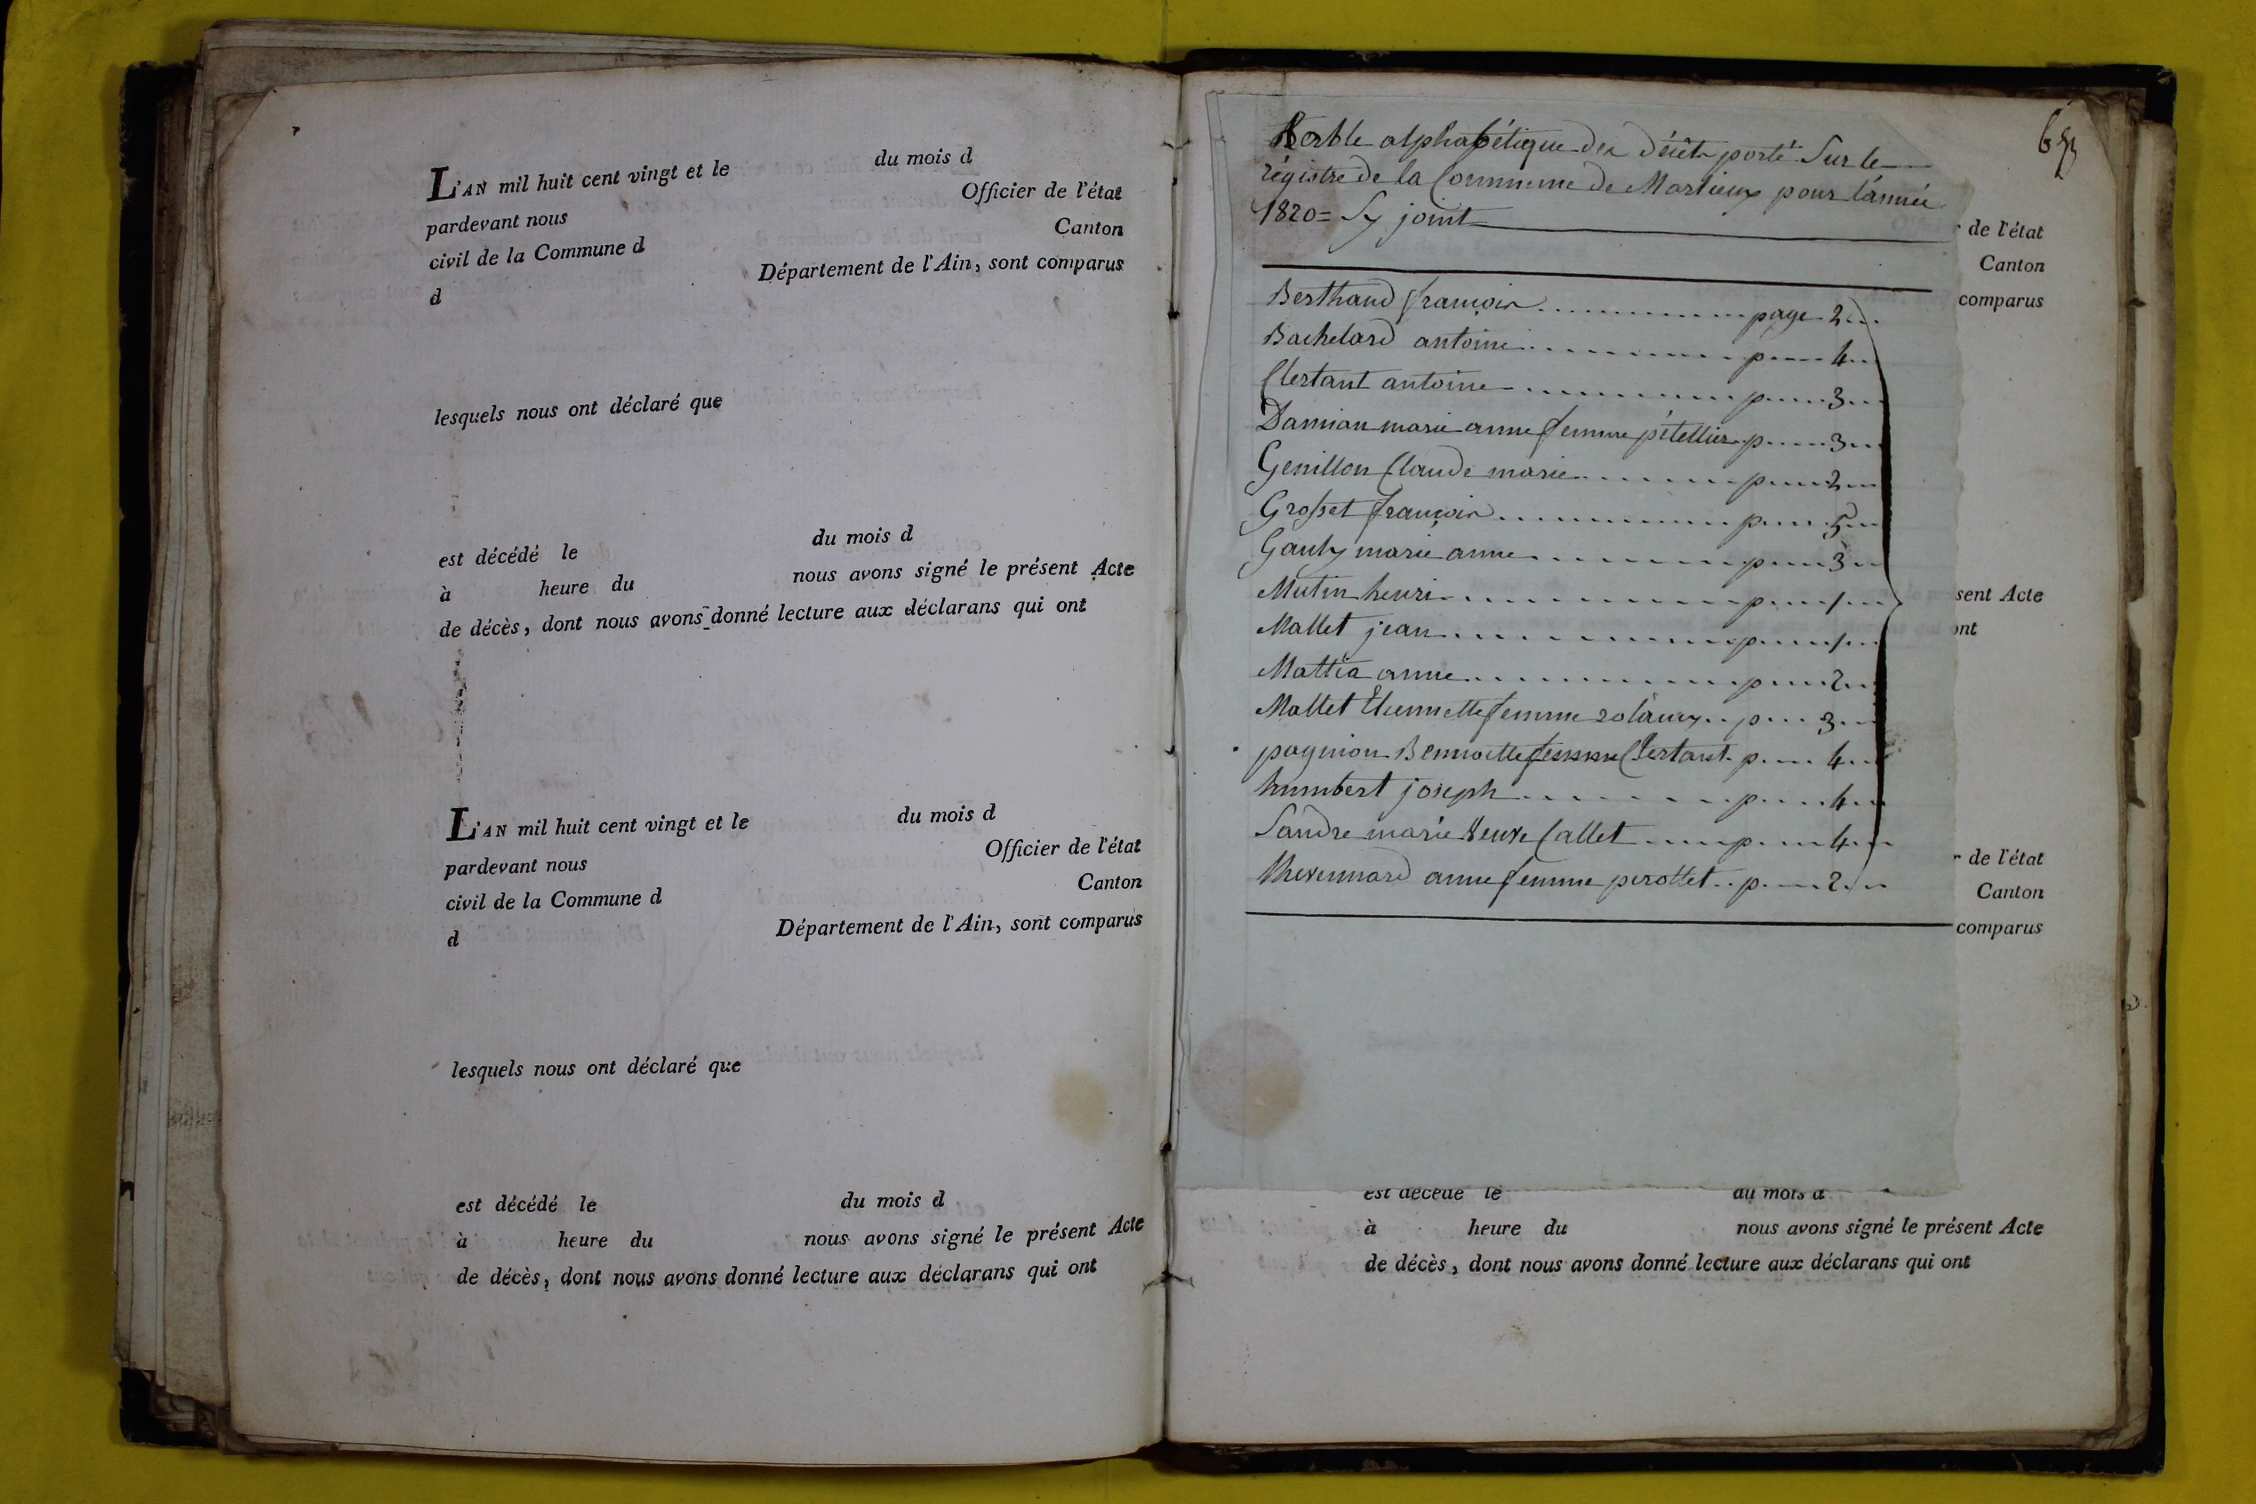 L'AN mil huit cent vingt et le du mois d
pardevant nous Officier de l'état
civil de la Commune d Canton
d Département de l'Ain, sont comparus
lesquels nous ont déclaré que
est décédé le du mois d
à heure du nous avons signé le présent Acte
de décès, dont nous avons donné lecture aux déclarans qui ont
L'AN mil huit cent vingt et le du mois d
pardevant nous Officier de l'état
civil de la Commune d Canton
d Département de l'Ain, sont comparus
lesquels nous ont déclaré que
est décédé le du mois d
à heure du nous avons signé le présent Acte
de décès, dont nous avons donné lecture aux déclarans qui ont
alphabétique des porté Sur le
régistre de la Commune de Marlieux pour l'année
1820 = Sy joint
Berthaud françois page 2
Bachelard antoine p 4
Clertant antoine p 3
Damian marie anne femme pétellier p 3
Genillon Claude marie p 2
Grosset françois p 5
Gauty marie anne p 3
Mutin henri p 1
Mallet jean p 1
Mattia anne p 2
Mallet Etiennette femme p 3
Bennoitte femme Clertant p 4
humbert joseph p 4
Sandre marie Veuve Callet p 4
thevennard anne femme perottet p 2
de l'état
Canton
comparus
sent Acte
ont
de l'état
Canton
comparus
est décédé le du mois d
à heure du nous avons signé le présent Acte
de décès, dont nous avons donné lecture aux déclarans qui ont